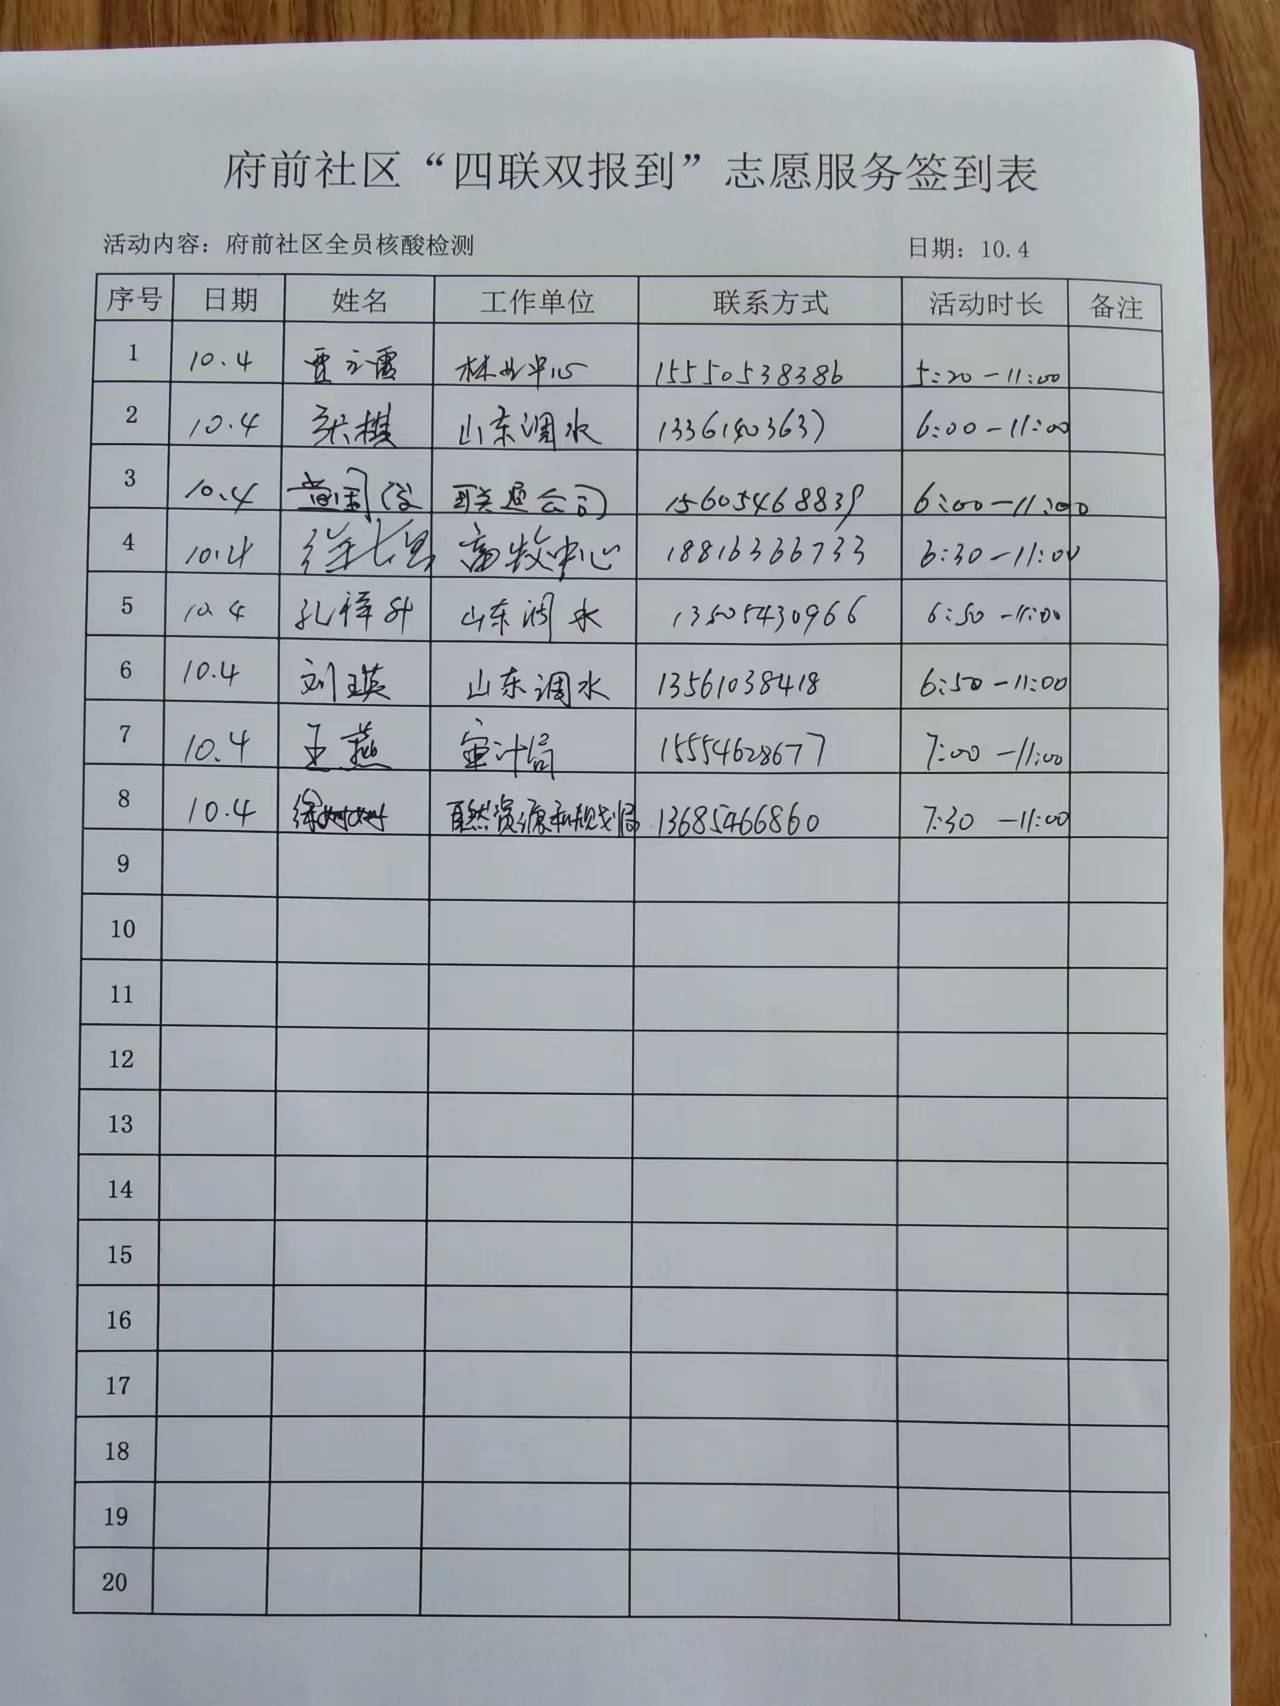 府前社区“四联双报到”志愿服务签到表
活动内容：府前社区全员核酸检测 日期：10.4
序号 日期 姓名 工作单位 联系方式 活动时长 备注
1 10.4 林业中心 15550538386 5:20-11:00
2 10.4 张棋 山东调水 13361403637 6:00-11:00
3 10.4 联通公司 15605468839 6:00-11:00
4 10.4 畜牧中心 18816366733 6:30-11:00
5 10.4 山东调水 13505430966 6:50-11:00
6 10.4 刘瑛 山东调水 13561038418 6:50-11:00
7 10.4 王燕 审计局 15554628677 7:00-11:00
8 10.4 自然资源和规划局 13685466860 7:30-11:00
9
10
11
12
13
14
15
16
17
18
19
20